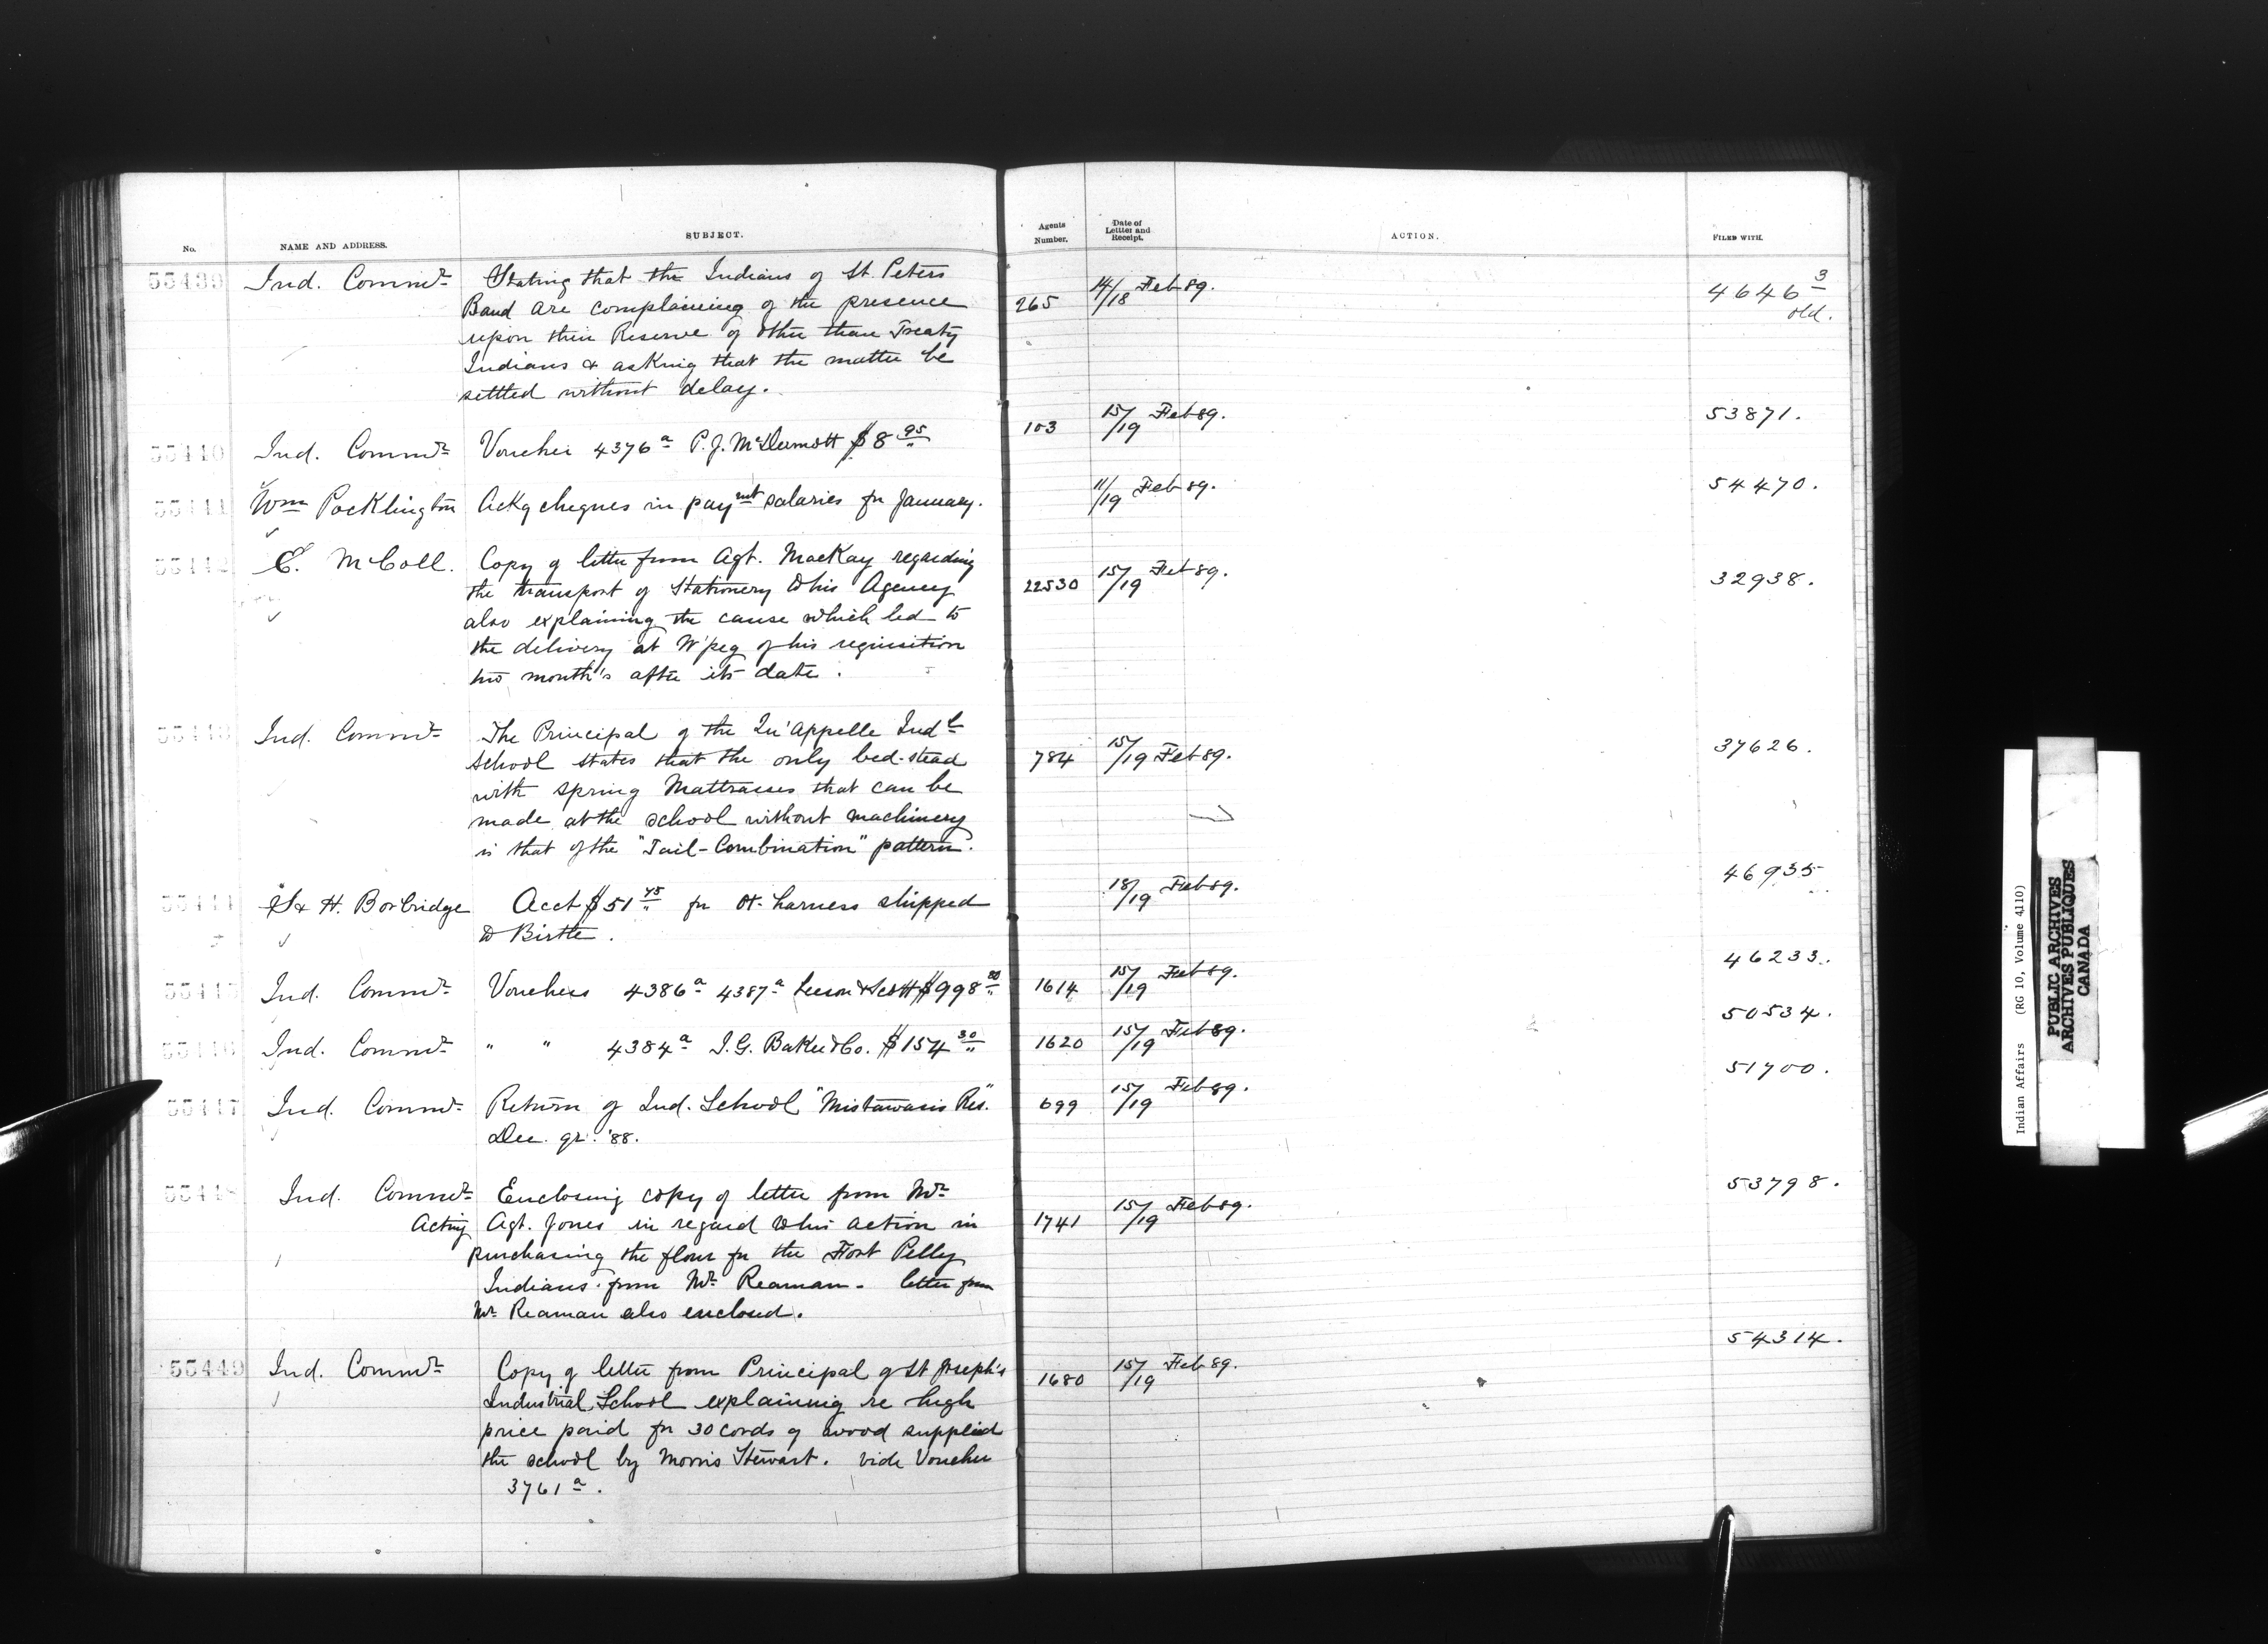 No.
NAME AND ADDRESS.
SUBJECT.
Agents Number.
Date of Letter and Receipt.
ACTION.
FILED WITH.
55439 Ind. Commr Stating that the Indians of St. Peters
Band are complaining of the presence
upon their Reserve of other than Treaty
Indians & asking that the matter be
settled without delay.
265 14/18 Feb 89. 4646 3
old.
55440 Ind. Commr Voucher 4376a P.J. McDermott $8 95
103 15/19 Feb 89. 53871.
55441 Wm Pocklington Ackg cheques in paymt salaries for January.
11/19 Feb 89. 54470.
55442 E. McColl. Copy of letter from Agt. MacKay regarding
the transport of Stationery to his Agency
also explaining the cause which led to
the delivery at W'peg of his requisition
two month's after its date.
22530 15/19 Feb 89. 32938.
55443 Ind. Commr The Principal of the Qu'Appelle Indl
School states that the only bed-stead
with spring Mattrasses that can be
made at the school without machinery
is that of the "Tail-Combination" pattern.
784 15/19 Feb 89. 37626.
55444 S & H. Borbridge Acct $51 75 for Ox harness shipped
to Birtle.
18/19 Feb 89. 46935
55445 Ind. Commr Vouchers 4386a 4387a Leeson & Scott $998 80
1614 15/19 Feb 89. 46233.
55446 Ind. Commr " " 4384a I.G. Baker & Co. $154 30
1620 15/19 Feb 89. 50534.
55447 Ind. Commr Return of Ind. School "Mistawasis Res."
Dec. qr. '88.
699 15/19 Feb 89. 51700.
55448 Ind. Commr Enclosing copy of letter from Mr
Acting Agt. Jones in regard to his action in
purchasing the flour for the Fort Pelly
Indians from Mr Reaman - letter from
Mr Reaman also enclosed.
1741 15/19 Feb 89. 53798.
55449 Ind. Commr Copy of letter from Principal of St Joseph's
Industrial School explaining re high
price paid for 30 cords of wood supplied
the school by Morris Stewart. vide Voucher
3761a.
1680 15/19 Feb 89. 54314.
Indian Affairs (RG 10, Volume 4110)
PUBLIC ARCHIVES
ARCHIVES PUBLIQUES
CANADA